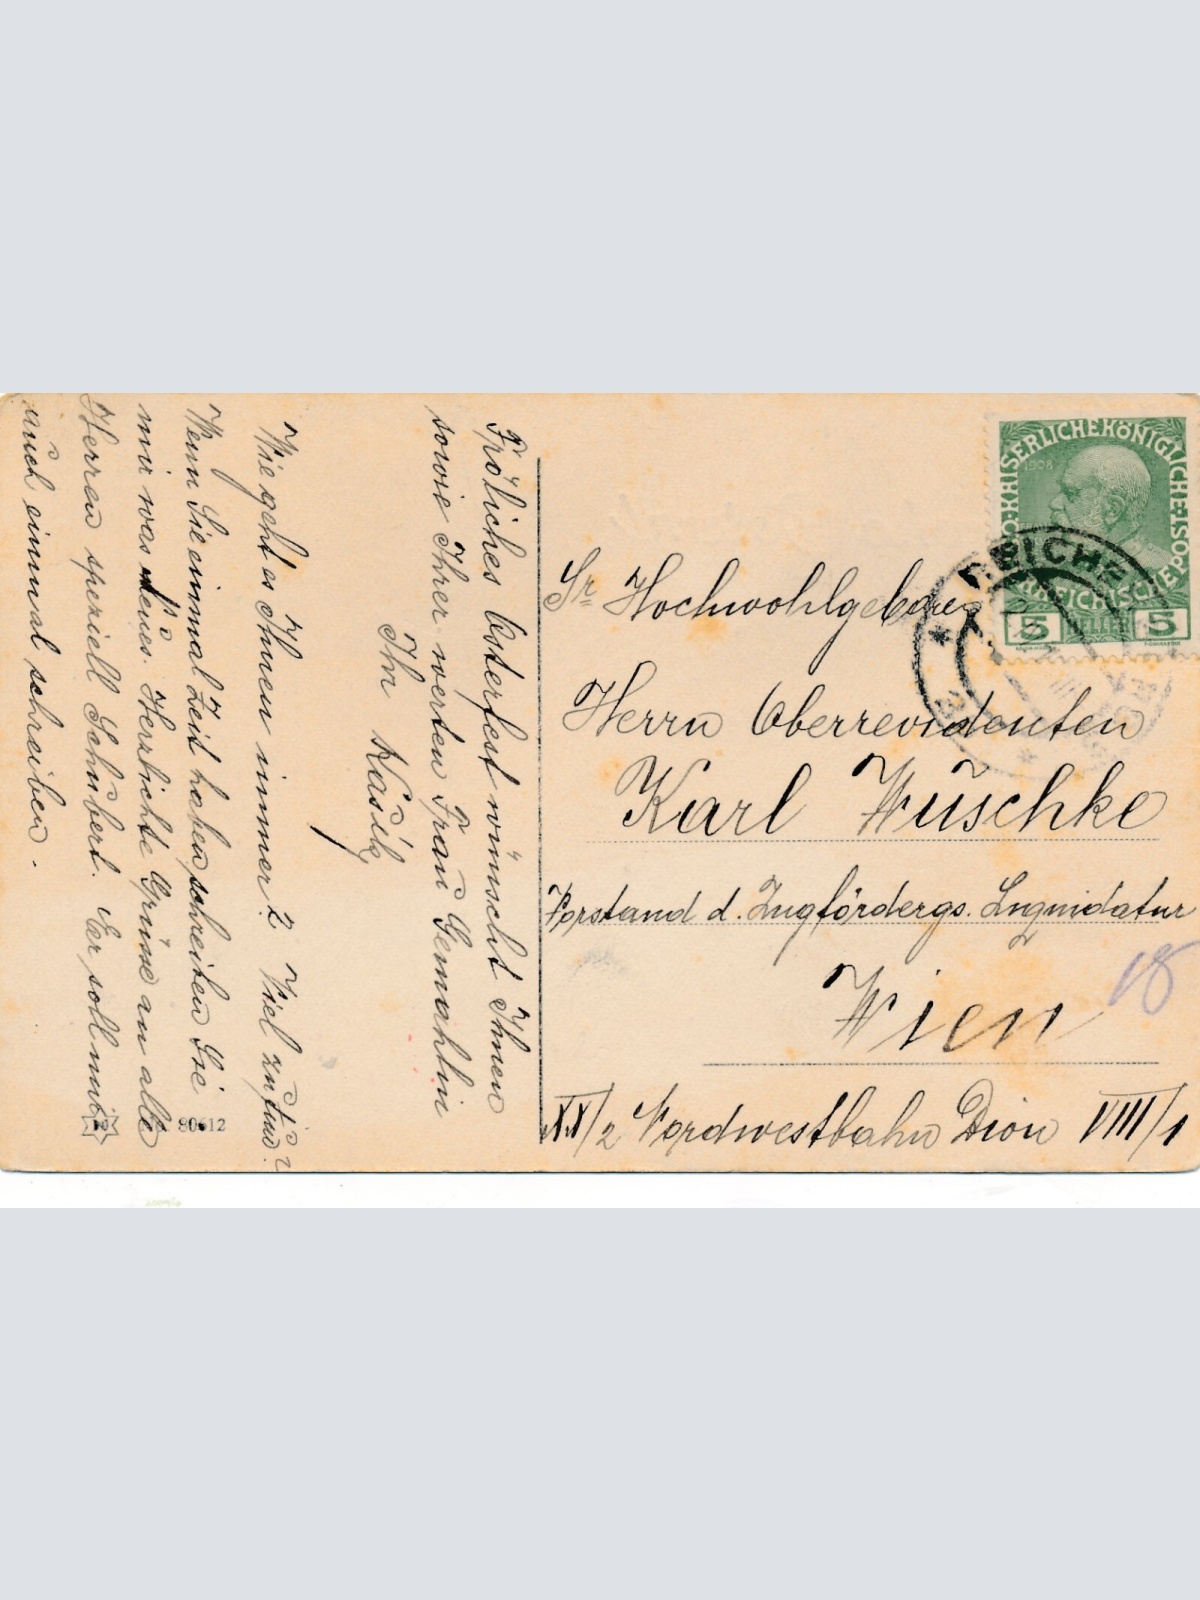 Fröliches Osterfest wünscht Ihnen
sowie Ihrer werten Frau Gemahlin
Ihr
Wie geht es Ihnen immer? Viel zu tun?
Wenn Sie einmal Zeit haben schreiben Sie
mir was neues. Herzlichte Grüsse an alle
Herren speziell Schubert. Er soll mir
auch einmal schreiben.
80612
Sr Hochwohlgeboren
Herrn Oberrevidenten
Karl Wuschke
Vorstand d. Zugfördergs. Liquidatur
Wien
XX/2 Nordwestbahn Dion VIII/1
18
KAISERLICHEKÖNIGLICHE
POST
1908
5 HELLER 5